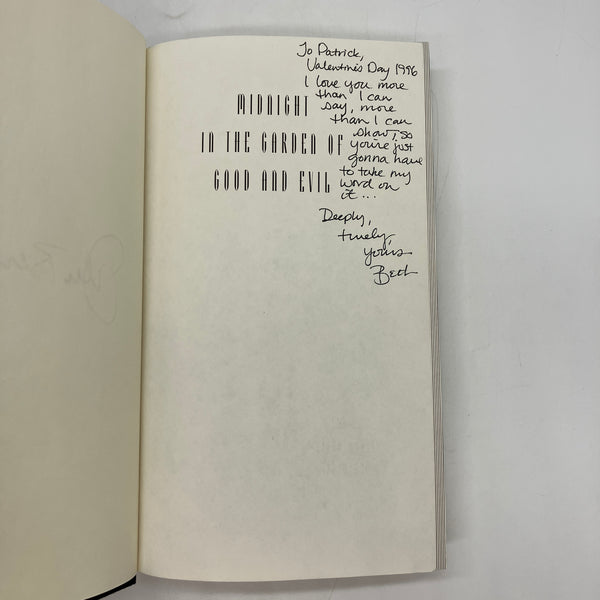 To Patrick,
Valentines Day 1996
I love you more
than I can
say, more
than I can
show, so
you're just
gonna have
to take my
word on
it...
Deeply,
truely,
yours
Beth
MIDNIGHT
IN THE GARDEN OF
GOOD AND EVIL